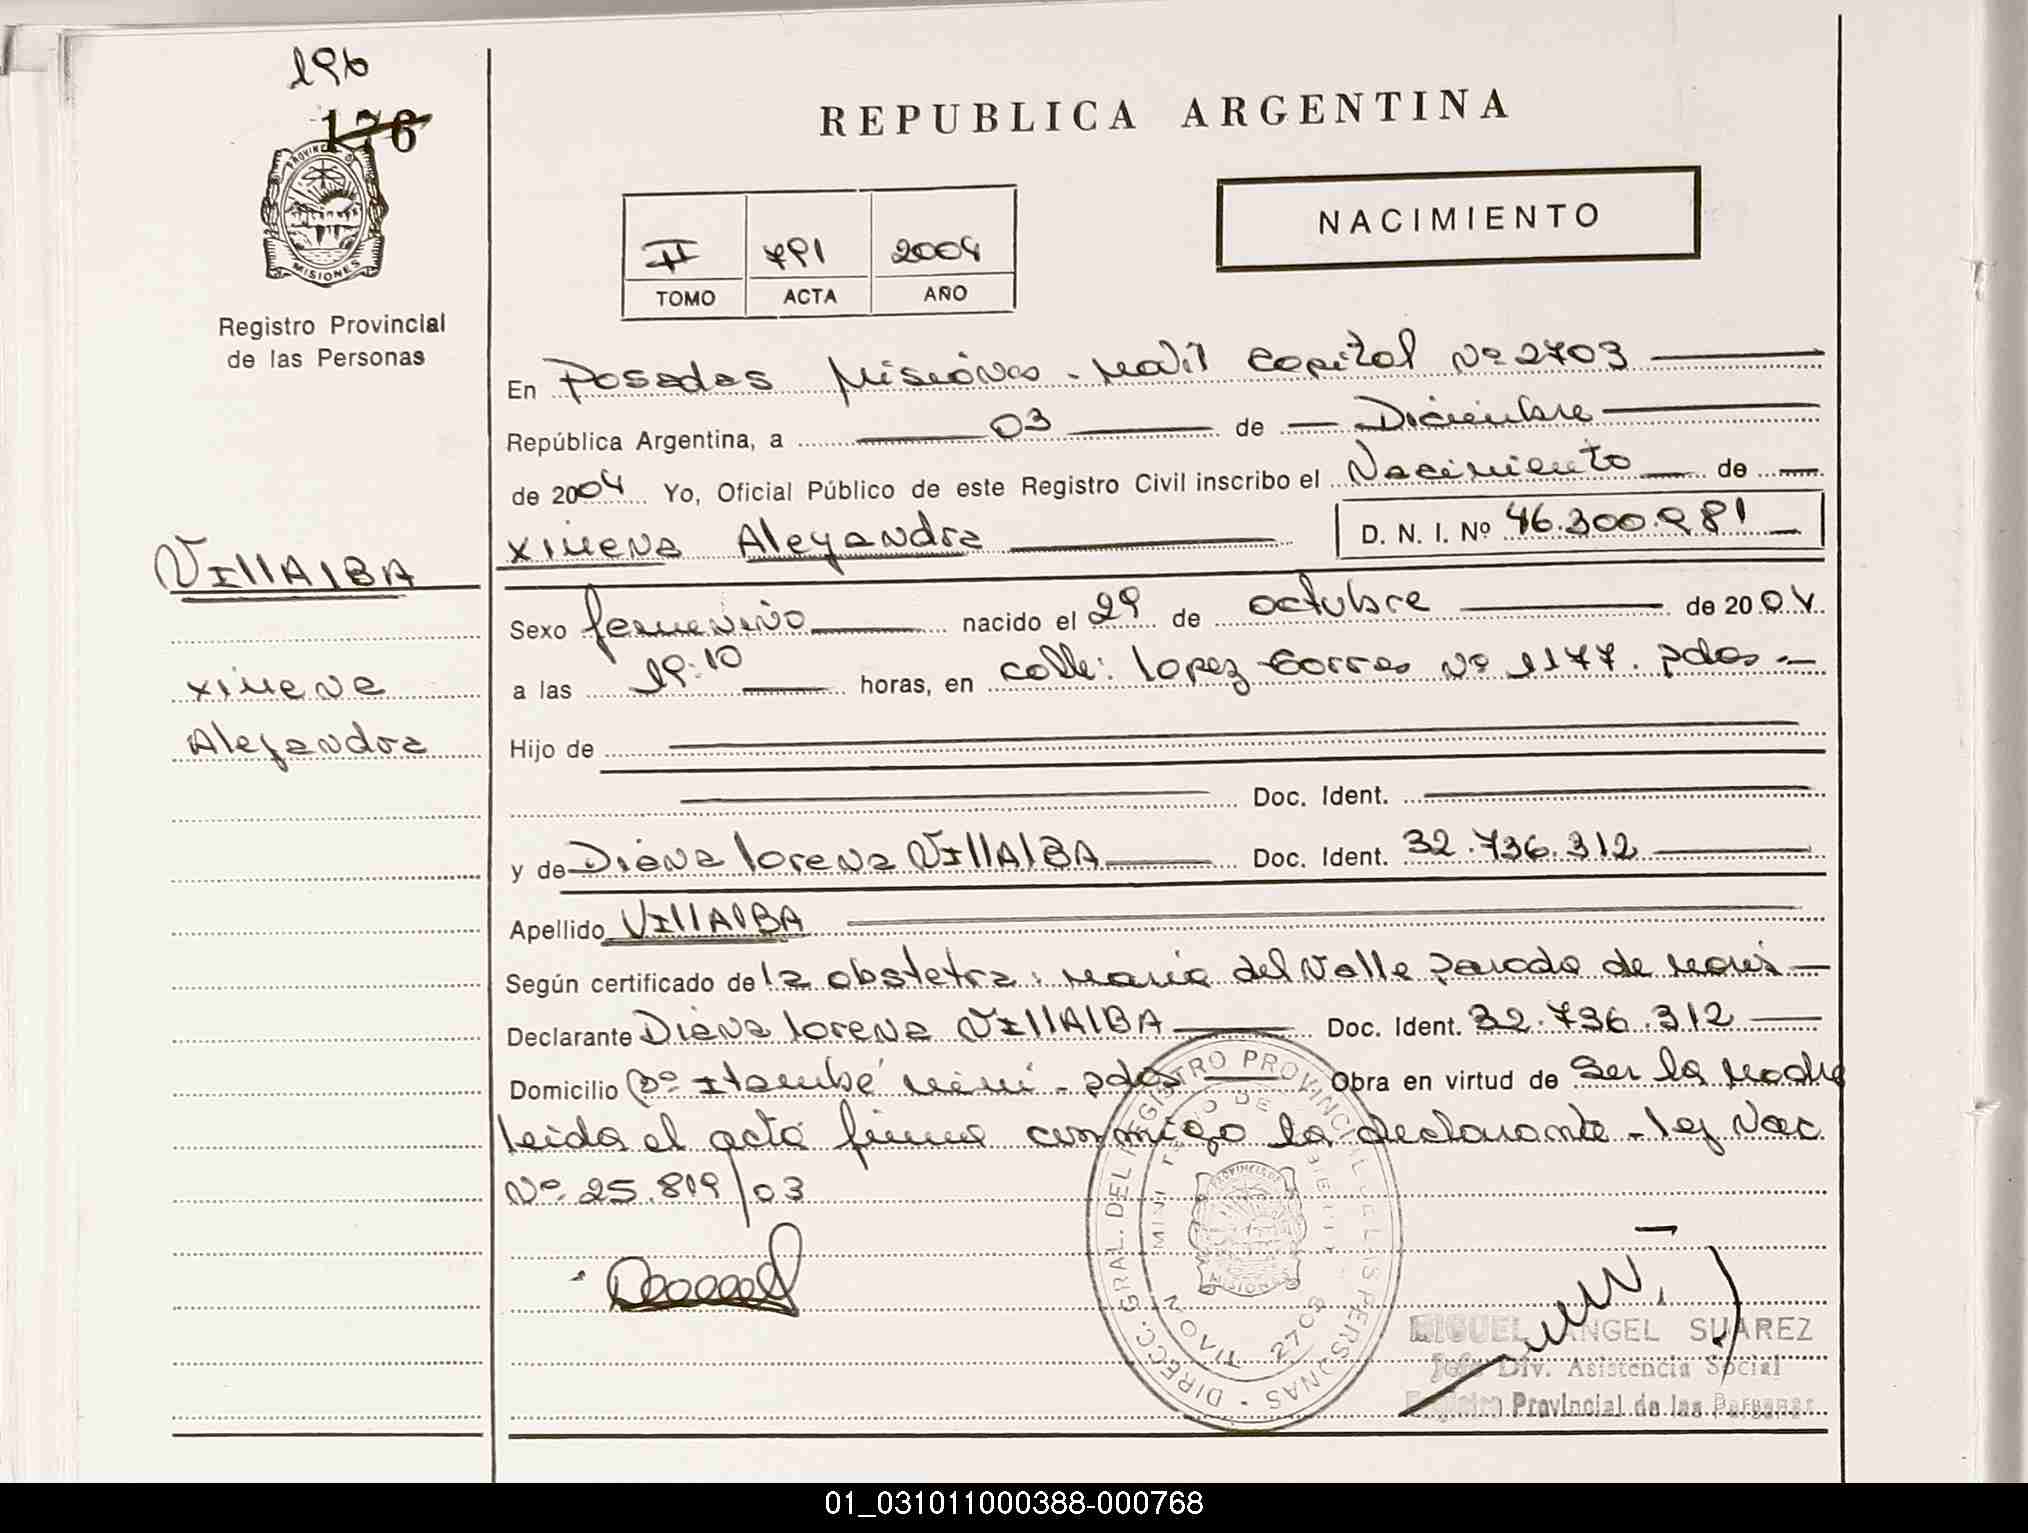 196
176
PROVINCIA DE
MISIONES
Registro Provincial
de las Personas
REPUBLICA ARGENTINA
NACIMIENTO
II 791 2004
TOMO ACTA AÑO
En Posadas Misiones - Movil Capital Nº 2703
República Argentina, a 03 de Diciembre
de 2004 Yo, Oficial Público de este Registro Civil inscribo el Nacimiento de
Ximena Alejandra D. N. I. Nº 46.300.981
VIllAlBA
Sexo femenino nacido el 29 de octubre de 2004
Ximena
a las 19:10 horas, en calle: lopez torres Nº 1177. pdas
Alejandra
Hijo de
Doc. Ident.
y de Diana lorena VIllAlBA Doc. Ident. 32.736.312
Apellido VIllAlBA
Según certificado de la obstetra: Maria del Valle parodo de
Declarante Diana lorena VIllAlBA Doc. Ident. 32.736.312
Domicilio Bº Itambé mini - pdas Obra en virtud de Ser la madre
leida el acta firma conmigo la declarante - ley Nac
Nº 25.819/03
DIRECC. GRAL. DEL REGISTRO PROVINCIAL DE LAS PERSONAS
2703
MISIONES
MIGUEL ANGEL SUAREZ
Jefe Div. Asistencia Social
Registro Provincial de las Personas
01_031011000388-000768